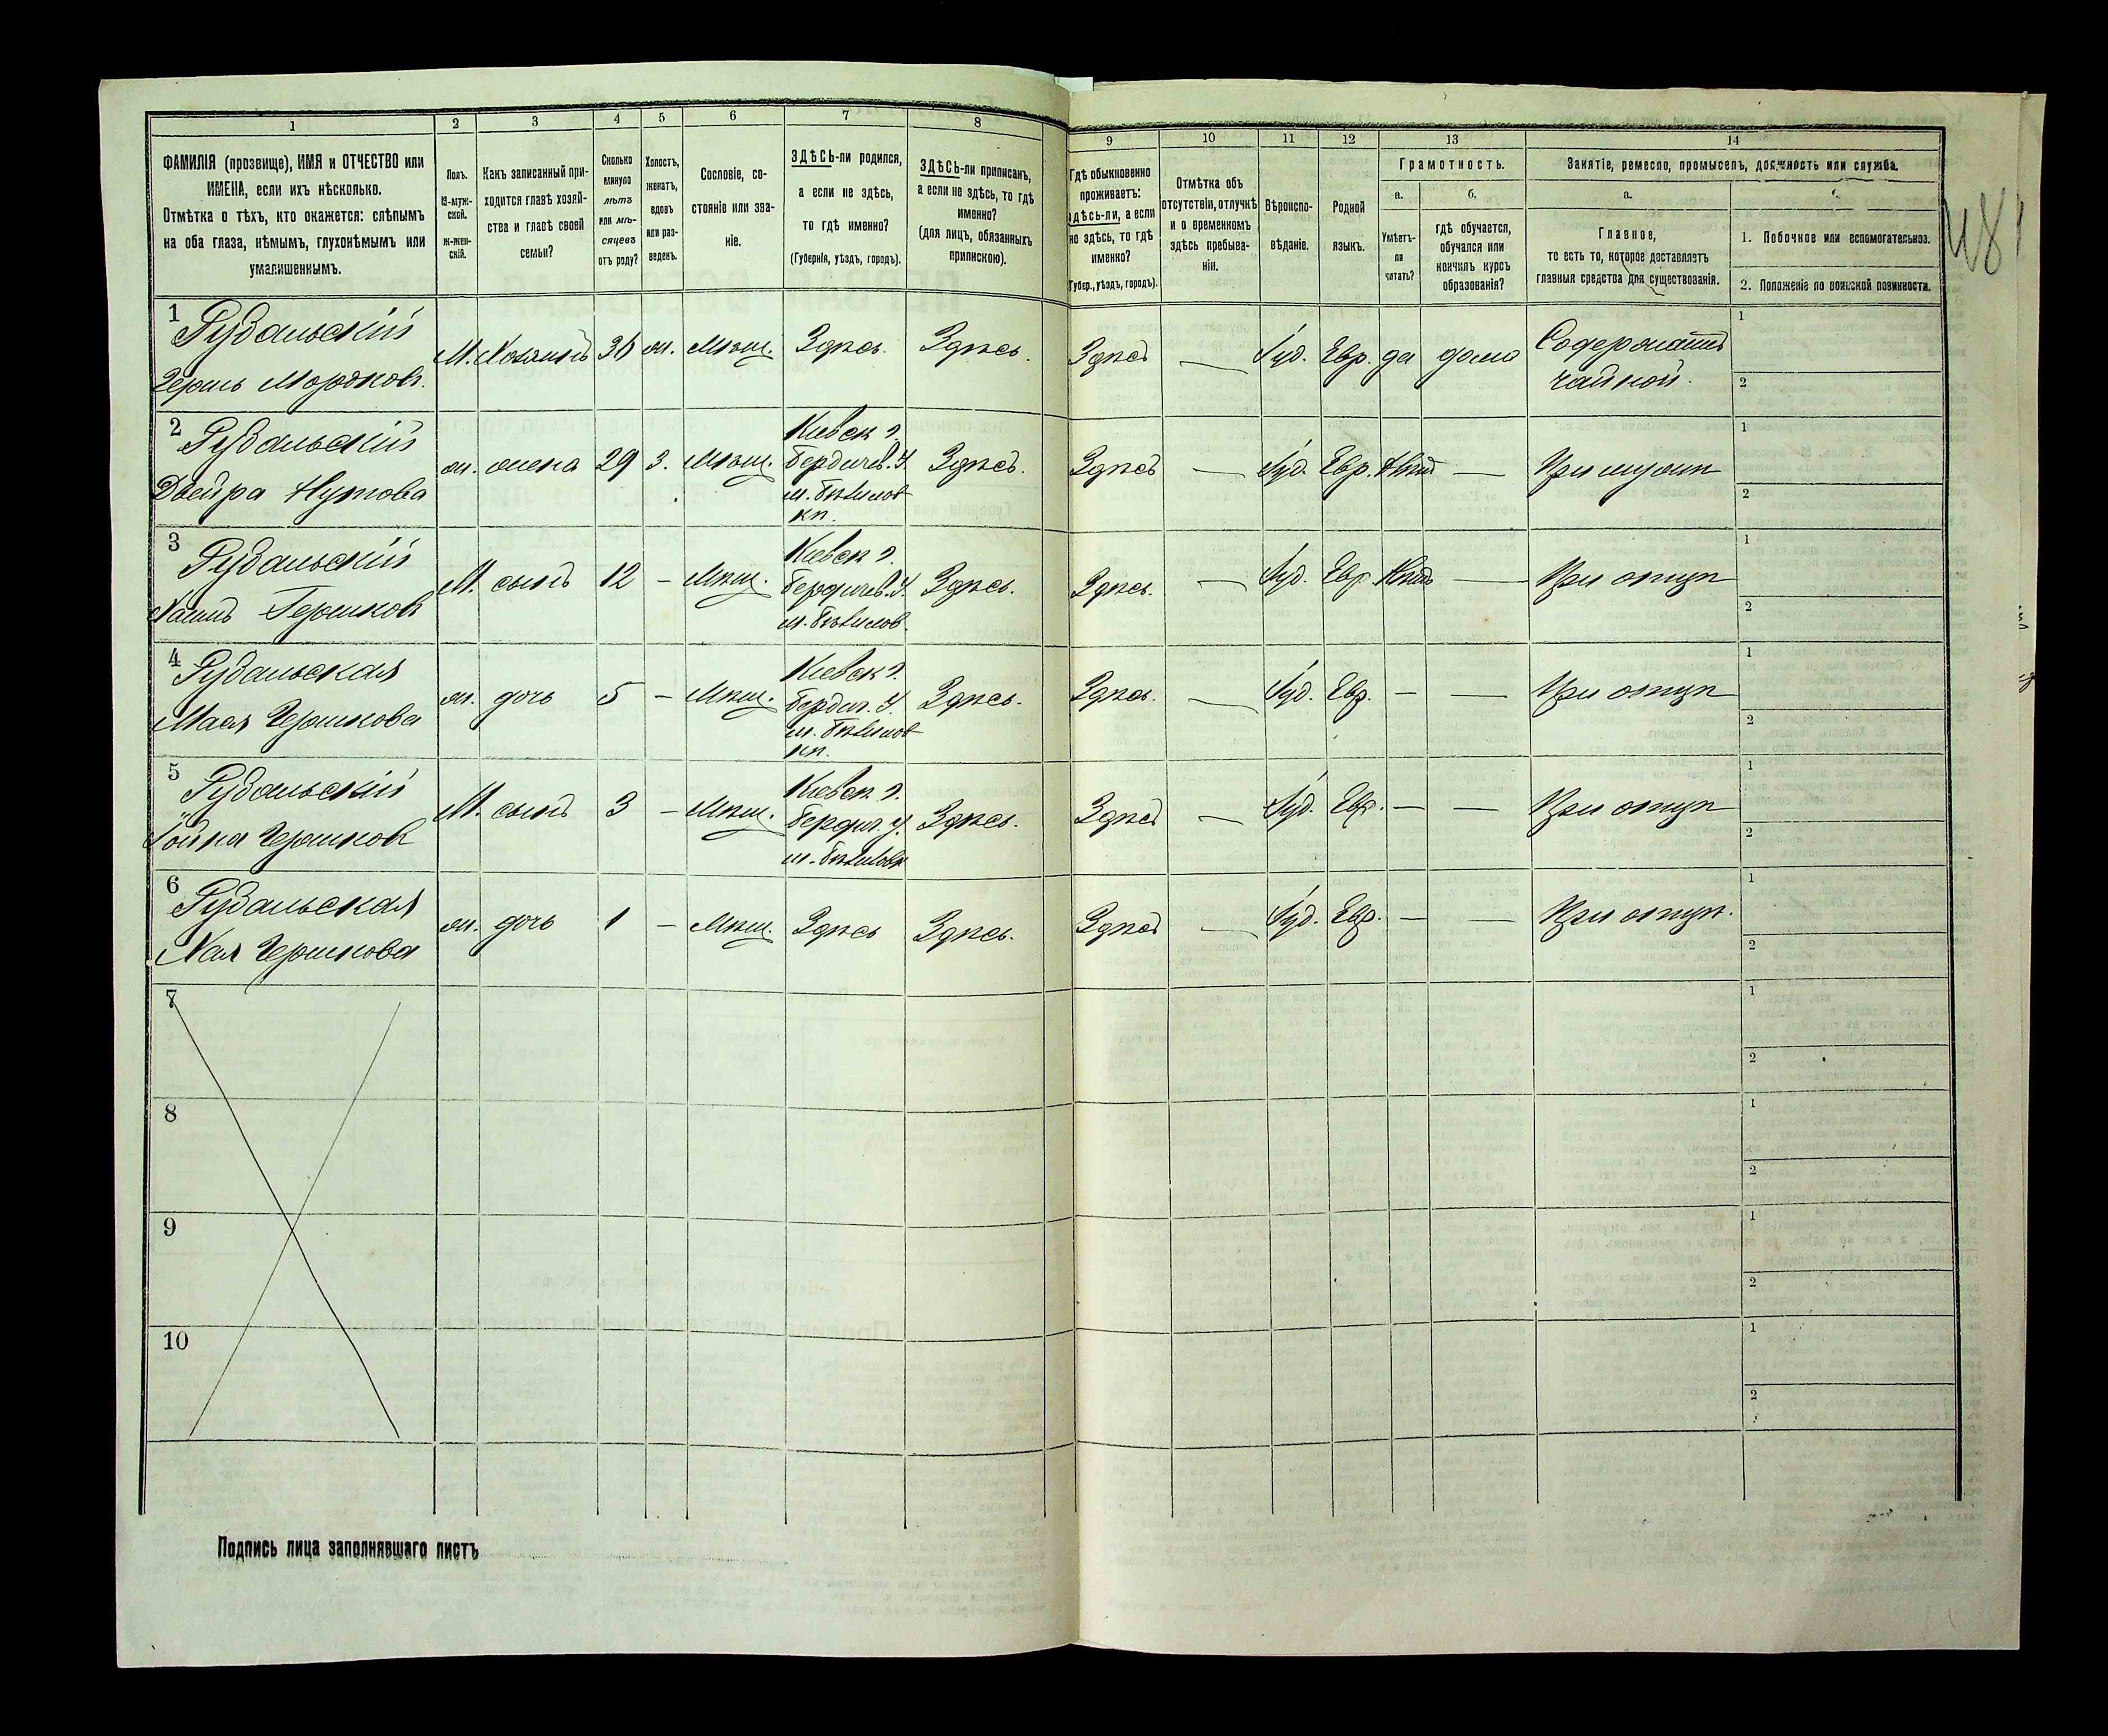 1 2 3 4 5 6 7 8 9 10 11 12 13 14
ФАМИЛІЯ (прозвище), ИМЯ и ОТЧЕСТВО или
ИМЕНА, если ихъ нѣсколько.
Отмѣтка о тѣхъ, кто окажется: слѣпымъ
на оба глаза, нѣмымъ, глухонѣмымъ или
умалишеннымъ.
Полъ.
М-муж-
ской.
Ж-жен-
скій.
Какъ записанный при-
ходится главѣ хозяй-
ства и главѣ своей
семьи?
Сколько
минуло
лѣтъ
или мѣ-
сяцевъ
отъ роду?
Холостъ,
женатъ,
вдовъ
или раз-
веденъ.
Сословіе, со-
стояніе или зва-
ніе.
ЗДѢСЬ-ли родился,
а если не здѣсь,
то гдѣ именно?
(Губернія, уѣздъ, городъ).
ЗДѢСЬ-ли приписанъ,
а если не здѣсь, то гдѣ
именно?
(для лицъ, обязанныхъ
припискою).
Гдѣ обыкновенно
проживаетъ:
здѣсь-ли, а если
не здѣсь, то гдѣ
именно?
(Губер., уѣздъ, городъ).
Отмѣтка объ
отсутствіи, отлучкѣ
и о временномъ
здѣсь пребыва-
ніи.
Вѣроиспо-
вѣданіе.
Родной
языкъ.
Грамотность.
а.
Умѣетъ-
ли
читать?
б.
гдѣ обучается,
обучался или
кончилъ курсъ
образованія?
Занятіе, ремесло, промыселъ, должность или служба.
а.
Главное,
то есть то, которое доставляетъ
главныя средства для существованія.
1. Побочное или вспомогательное.
2. Положеніе по воинской повинности.
481
1 Рудальскій
Герш Мордков.
М. Хозяинъ 36 ж. Мѣщ. Здѣсь. Здѣсь. Здѣсь — Іуд. Евр. да дома
Содержатъ
чайной.
1
2
2 Рудальскій
Двейра Нутова
ж. жена 29 З. Мѣщ.
Кіевск г.
Бердичев. у
м. Бѣлилов
кп.
Здѣсь. Здѣсь — Іуд. Евр. Нѣтъ — При мужѣ
1
2
3 Рудальскій
Хаимъ Гершков
М. сынъ 12 — Мѣщ.
Кіевск г.
Бердичев. у.
м. Бѣлилов.
Здѣсь. Здѣсь. — Іуд. Евр. Нѣтъ — При отцѣ
1
2
4 Рудальская
Мася Гершкова
ж. дочь 5 — Мѣщ.
Кіевск г.
Бердич. у.
м. Бѣлилов
кп.
Здѣсь. Здѣсь. — Іуд. Евр. — — При отцѣ
1
2
5 Рудальскій
Іойна Гершков
М. сынъ 3 — Мѣщ.
Кіевск г.
Бердич. у.
м. Бѣлиловк
Здѣсь. Здѣсь — Іуд. Евр. — — При отцѣ
1
2
6 Рудальская
Хая Гершкова
ж. дочь 1 — Мѣщ. Здѣсь Здѣсь. Здѣсь — Іуд. Евр. — — При отцѣ.
1
2
7
1
2
8
1
2
9
1
2
10
1
2
Подпись лица заполнявшаго листъ